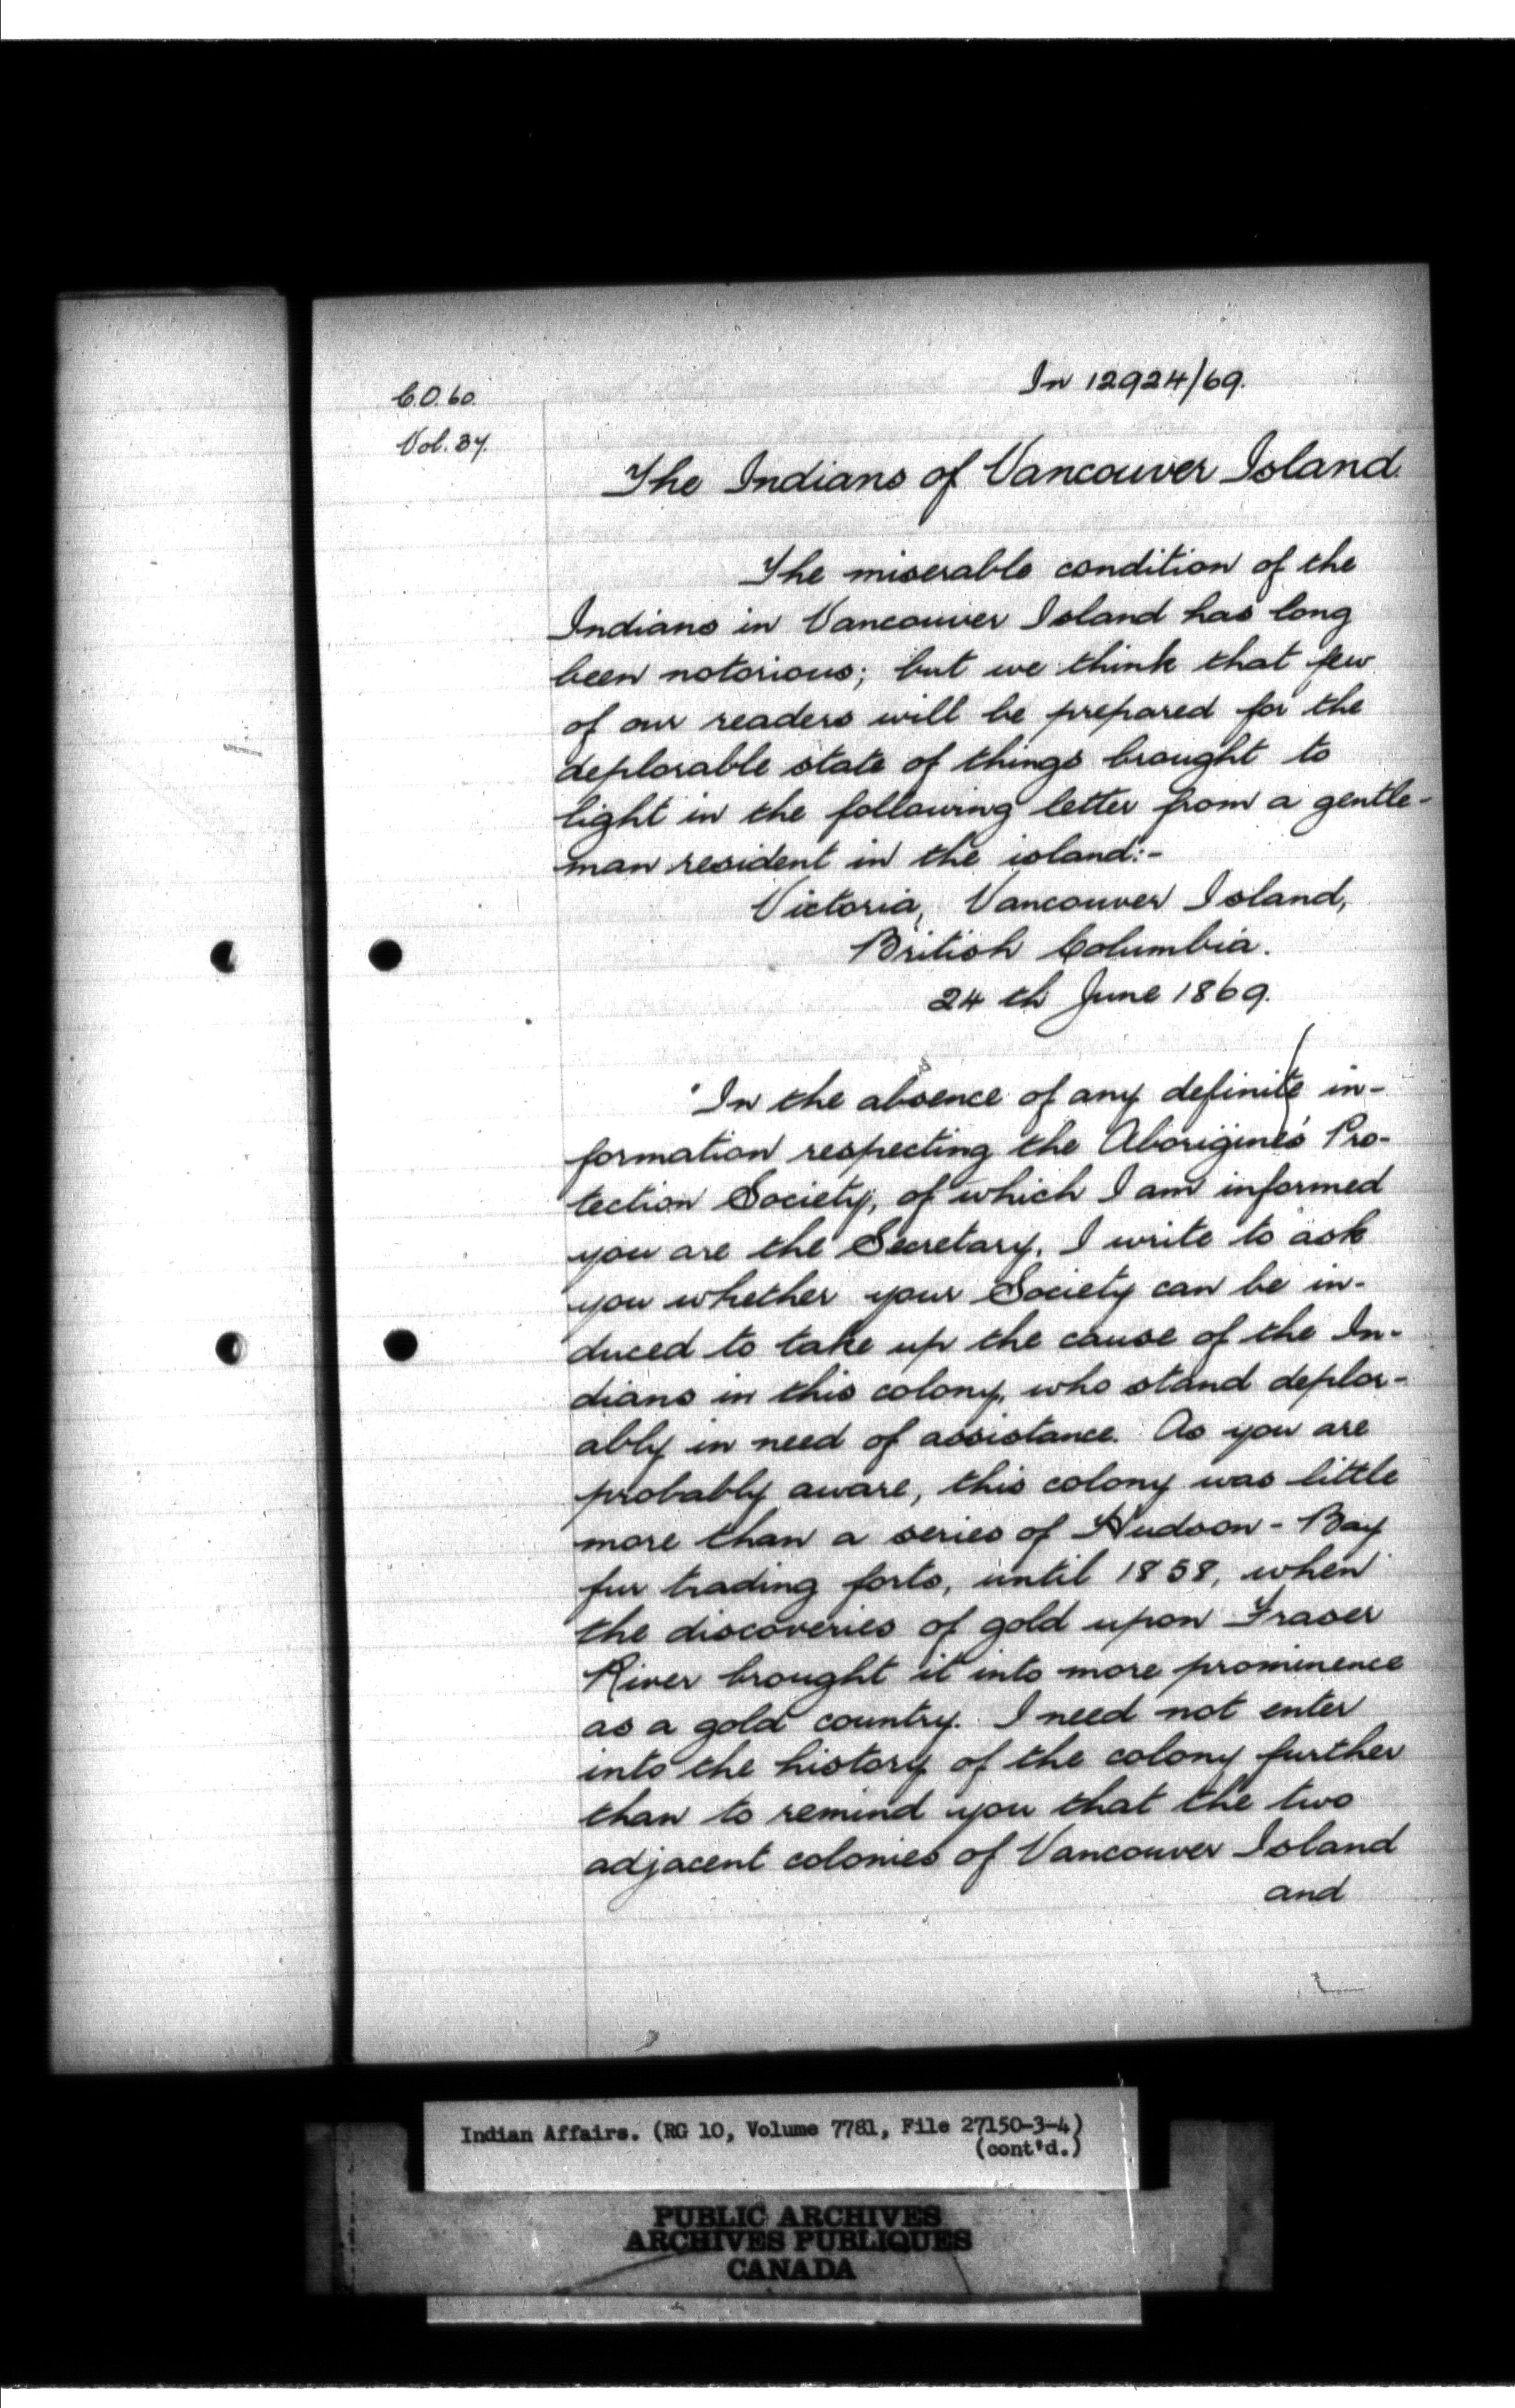 In 12924/69.
C.O. 60.
Vol. 37.
The Indians of Vancouver Island.
The miserable condition of the
Indians in Vancouver Island has long
been notorious; but we think that few
of our readers will be prepared for the
deplorable state of things brought to
light in the following letter from a gentle-
man resident in the island:-
Victoria, Vancouver Island,
British Columbia.
24 th June 1869.
"In the absence of any definite in-
formation respecting the Aborigines' Pro-
tection Society, of which I am informed
you are the Secretary, I write to ask
you whether your Society can be in-
duced to take up the cause of the In-
dians in this colony, who stand deplor-
ably in need of assistance. As you are
probably aware, this colony was little
more than a series of Hudson-Bay
fur trading forts, until 1858, when
the discoveries of gold upon Fraser
River brought it into more prominence
as a gold country. I need not enter
into the history of the colony further
than to remind you that the two
adjacent colonies of Vancouver Island
and
Indian Affairs. (RG 10, Volume 7781, File 27150-3-4)
(cont'd.)
PUBLIC ARCHIVES
ARCHIVES PUBLIQUES
CANADA